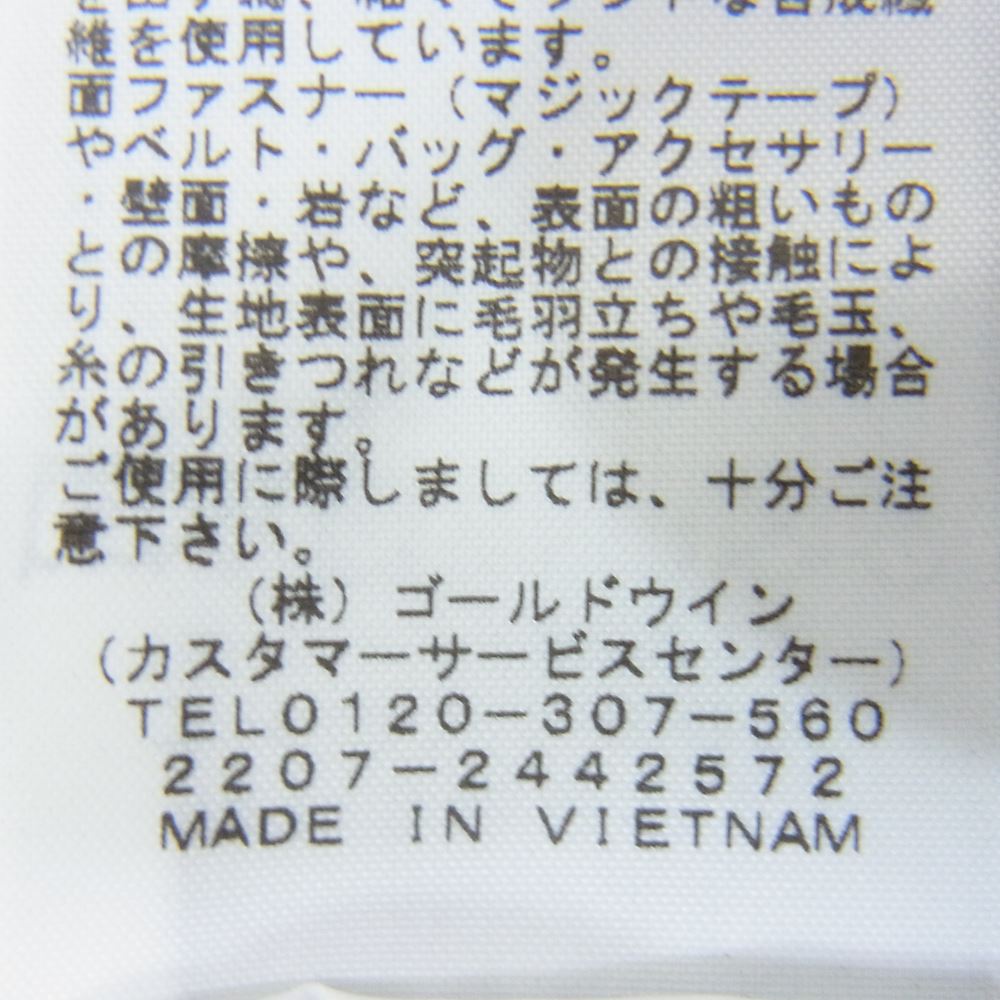 維を使用しています。
面ファスナー（マジックテープ）
やベルト・バッグ・アクセサリー
・壁面・岩など、表面の粗いもの
との摩擦や、突起物との接触によ
り、生地表面に毛羽立ちや毛玉、
糸の引きつれなどが発生する場合
があります。
ご使用に際しましては、十分ご注
意下さい。
（株）ゴールドウイン
（カスタマーサービスセンター）
TEL0120−307−560
2207−2442572
MADE IN VIETNAM